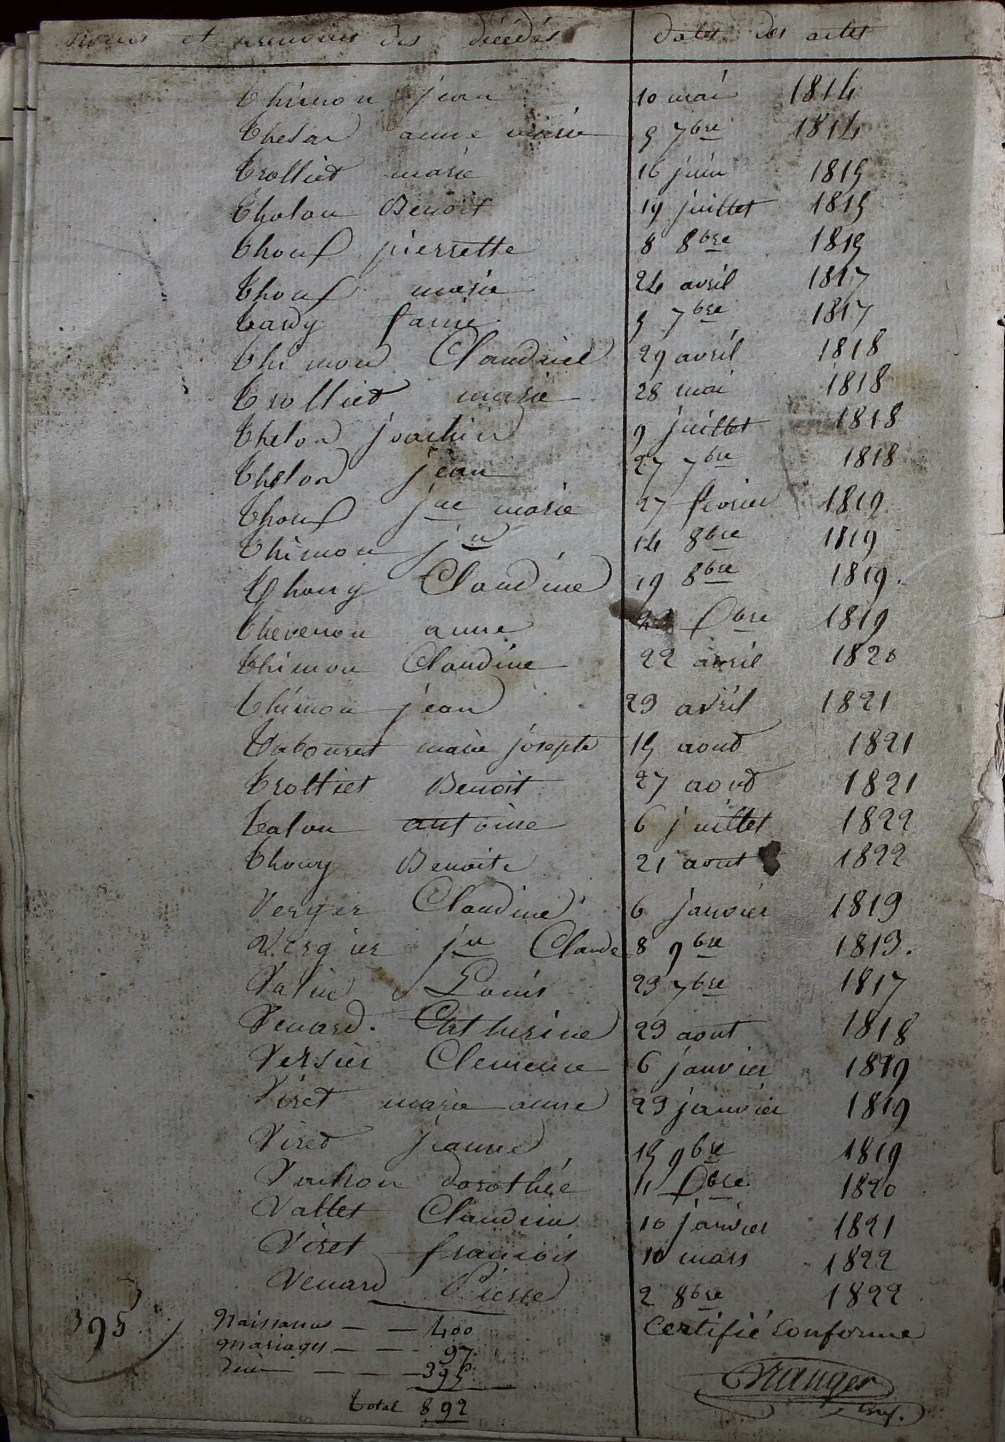 Noms et prénoms des décédés dates des actes
Thimon jean 10 mai 1814
Thelon anne marie 5 7bre 1814
Trolliet marie 16 juin 1815
Tholon Benoit 19 juillet 1815
Thouf pierrette 8 8bre 1815
Thouf marie 24 avril 1817
Tardy 5 7bre 1817
Thimon Claudine 29 avril 1818
Trolliet marie 28 mai 1818
Thelon joachin 9 juillet 1818
Thelon jean 27 7bre 1818
Thouf marie 27 février 1819
Thimon jn 14 8bre 1819
Thouy Claudine 19 8bre 1819.
Thevenon anne bre 1819
Thimon Claudine 22 avril 1820
Thimon jean 23 avril 1821
Tabouret marie josepte 15 aout 1821
Trolliet Benoit 27 aout 1821
Talon antoine 6 juillet 1822
Thouy Benoite 21 aout 1822
Verger Claudine 6 janvier 1813
Vergier jn Claude 8 9bre 1813.
Valin Louis 23 7bre 1817
Venard. Catherine 23 aout 1818
Versier Clemence 6 janvier 1819
Viret marie anne 23 janvier 1819
Viret jeanne 15 9bre 1819
Vachon dorothée 11 bre 1820
Vallet Claudine 10 janvier 1821
Viret francois 10 mars 1822
Venard Pierre 2 8bre 1822
Naissances — — 400 Certifié Conforme
395 mariages — — 97
— — 395
Total 892